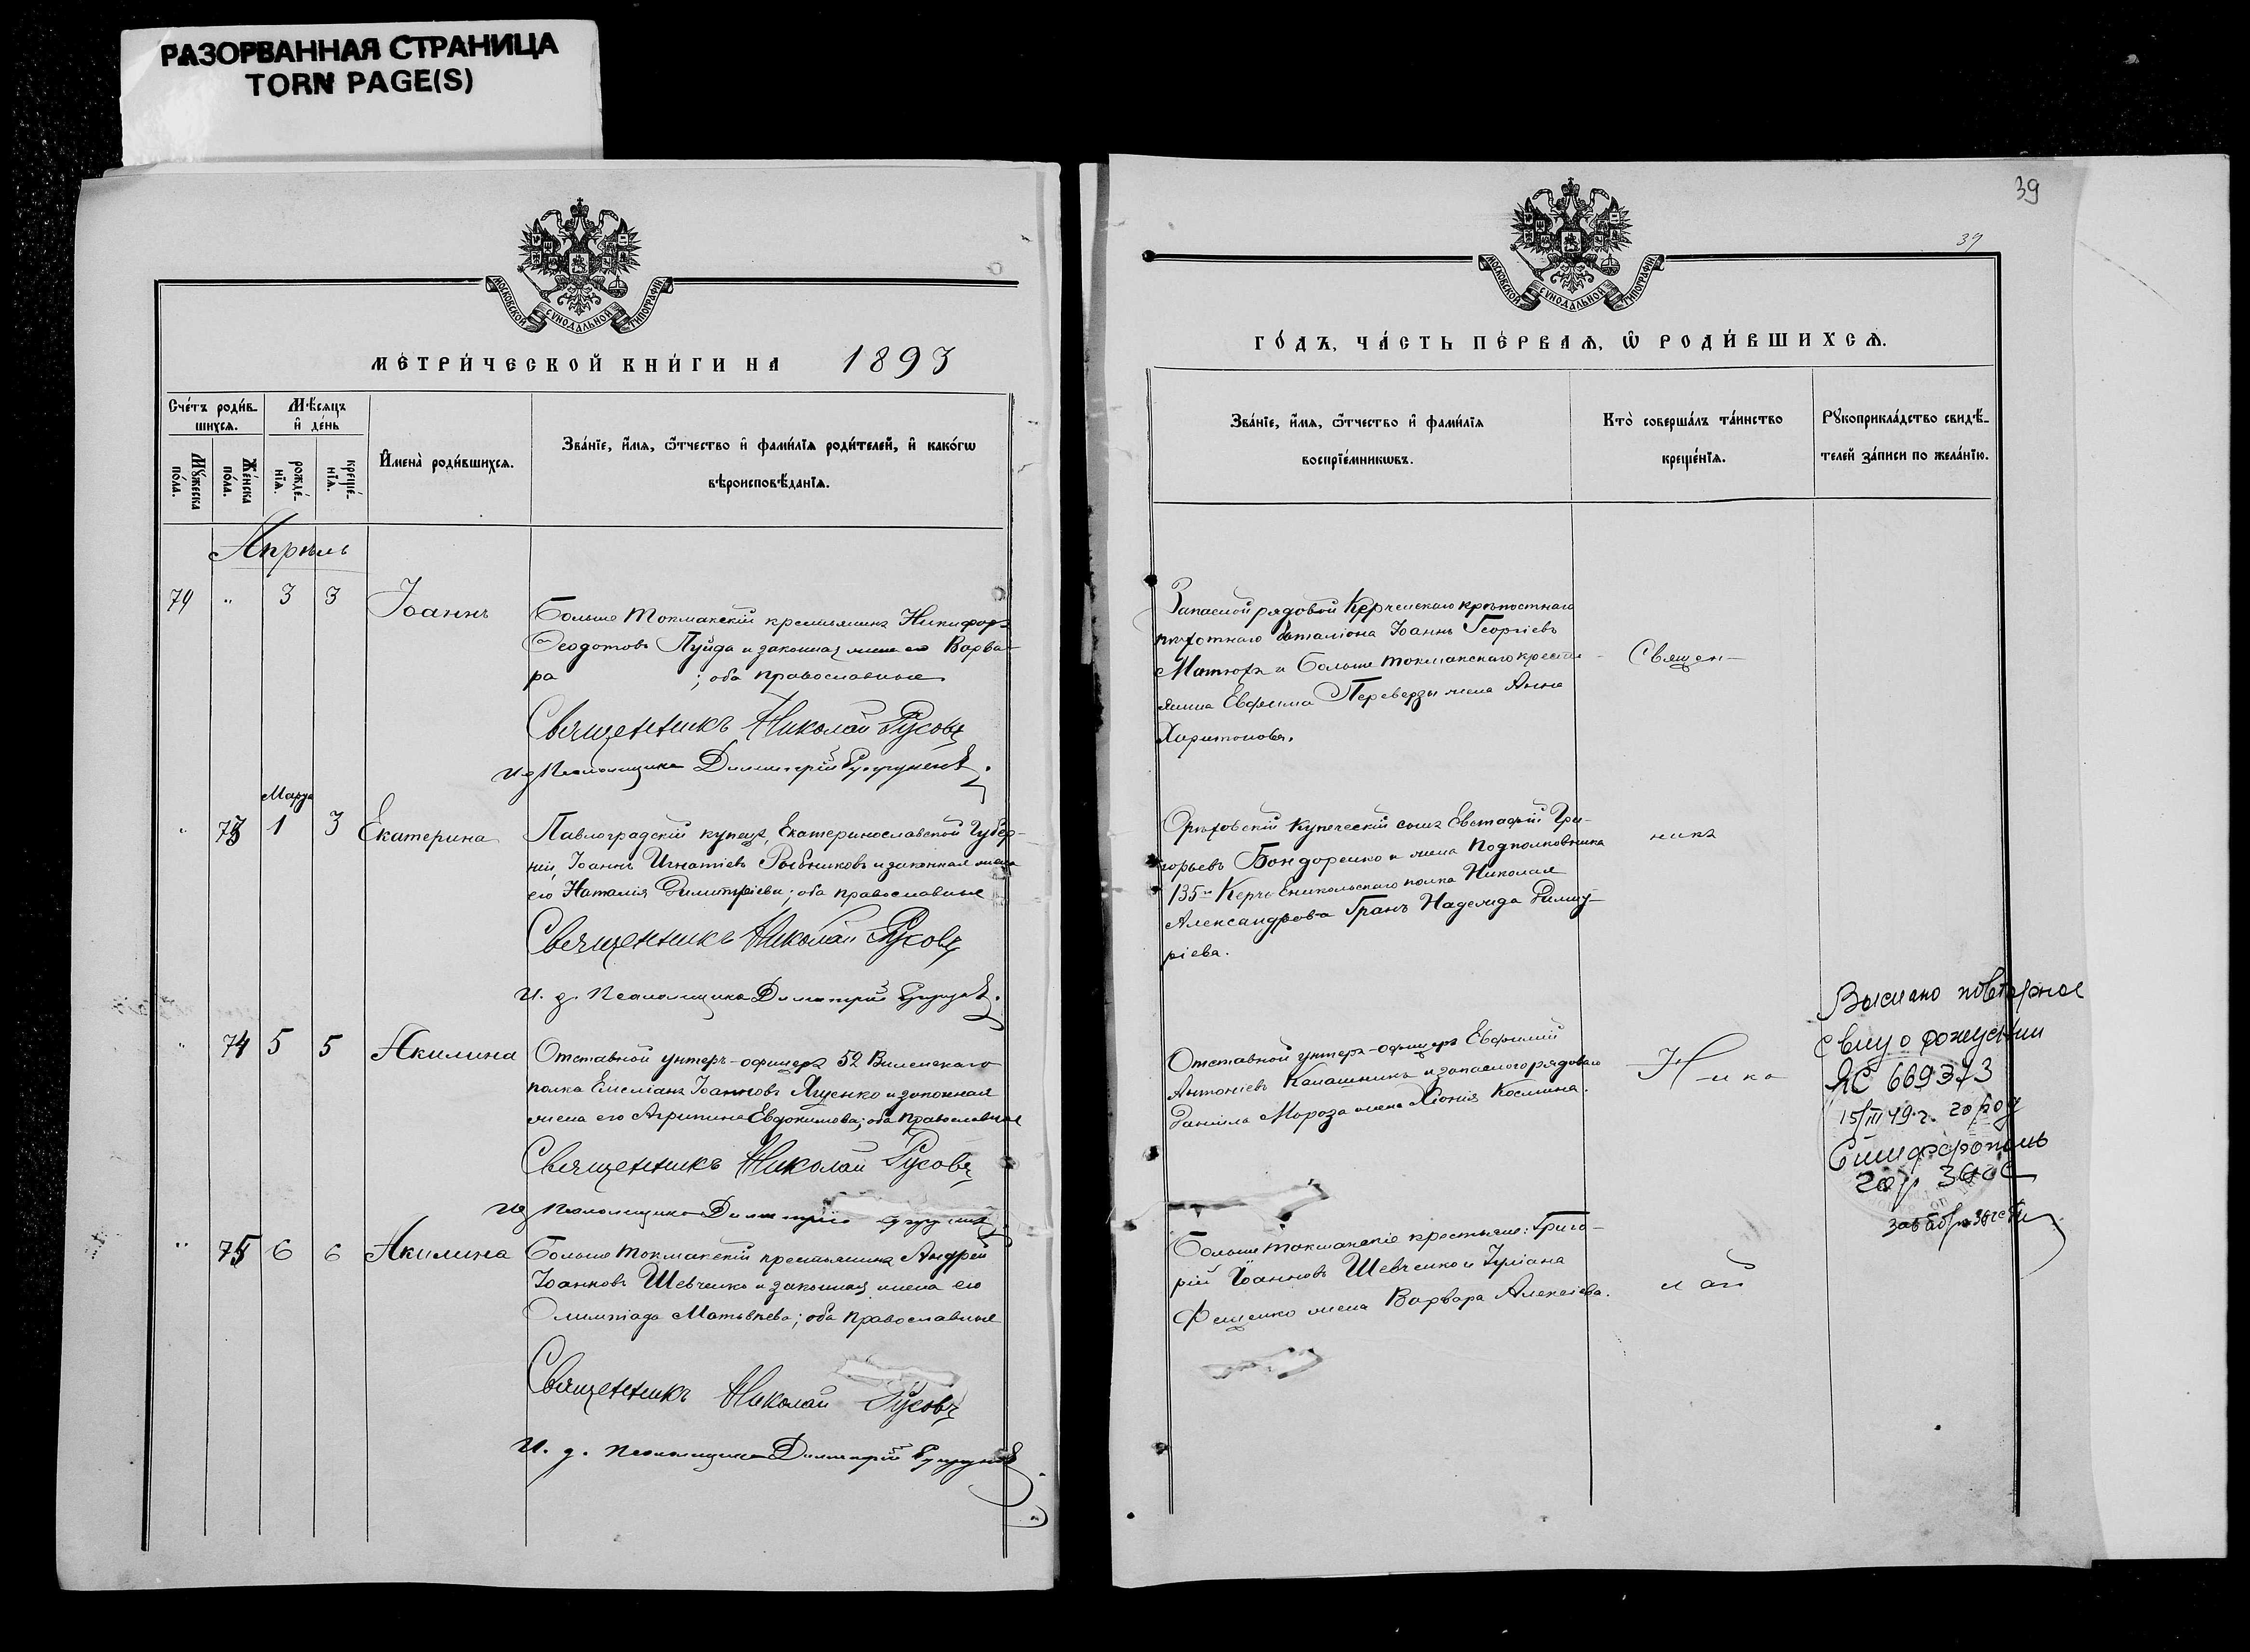 РАЗОРВАННАЯ СТРАНИЦА
TORN PAGE(S)
МОСКОВСКОЙ СѴНОДАЛЬНОЙ ТИПОГРАФІИ
МЕТРИ́ЧЕСКОЙ КНИ́ГИ НА 1893
Сче́тъ роди́в-
шихсѧ.
Мѣ́сѧцъ
и҆ де́нь
Мꙋ́жеска
по́ла.
Же́нска
по́ла.
рожде́-
нїѧ.
креще́-
нїѧ.
И҆мена̀ роди́вшихсѧ.
Зва́нїе, и҆́мѧ, ѻ҆́тчество и҆ фами́лїѧ роди́телей, и҆ како́гѡ
вѣроисповѣ́данїѧ.
Апрѣль
79 " 3 3 Іоаннъ
Больше Токмакскій крестьянинъ Никифоръ
Ѳеодотовъ Пуйда и законная жена его Варва-
ра ; оба православные
Священникъ Николай Русовъ
И д Псаломщика Димитрій
Марта
" 73 1 3 Екатерина
Павлоградскій купецъ, Екатеринославской Губер-
ніи, Іоаннъ Игнатіевъ Рыбниковъ и законная жена
его Наталія Димитріева; оба православные
Священникъ Николай Русовъ
И. д. Псаломщика Димитрій
" 74 5 5 Акилина
Отставной унтеръ-офицеръ 52 Виленскаго
полка Емеліанъ Іоанновъ Яценко и законная
жена его Агрипина Евдокимова; оба православные
Священникъ Николай Русовъ
И д Псаломщика Димитрій
" 75 6 6 Акилина
Больше Токмакскій крестьянинъ Андрей
Іоанновъ Шевченко и законная жена его
Олимпіада Матвѣева; оба православные
Священникъ Николай Русовъ
И. д. Псаломщика Димитрій
39
39
МОСКОВСКОЙ СѴНОДАЛЬНОЙ ТИПОГРАФІИ
ГО́ДЪ, ЧА́СТЬ ПЕ́РВАѦ, Ѡ҆ РОДИ́ВШИХСѦ.
Зва́нїе, и҆́мѧ, ѻ҆́тчество и҆ фами́лїѧ
воспрїе́мникѡвъ.
Кто̀ соверша́лъ та́инство
креще́нїѧ.
Рꙋкоприкла́дство свидѣ́-
телей за́писи по жела́нїю.
Запасной рядовой Керченскаго крѣпостнаго
пѣхотнаго баталіона Іоаннъ Георгіевъ
Матюха и Больше Токмакскаго кресть-
янина Евфима Переверзы жена Анна
Харитонова.
Священ-
Орѣховскій Купеческій сынъ Евстафій Гри-
горьевъ Бондаренко и жена Подполковника
135го Керчь Еникольскаго полка Николая
Александрова Гранъ Надежда Димит-
ріева.
никъ
Отставной унтеръ-офицеръ Евфимій
Антоніевъ Калашникъ и запасного рядоваго
Даніила Мороза жена Хіонія Космина.
Нико
Больше Токмакскіе крестьяне: Григо-
рій Іоанновъ Шевченко и Іуліана
Фещенко жена Варвара Алексіева.
лай
Выслано повторное
свид о рождении
ЯС 669373
15/III 49 г. город
Симферополь
гор ЗАГС